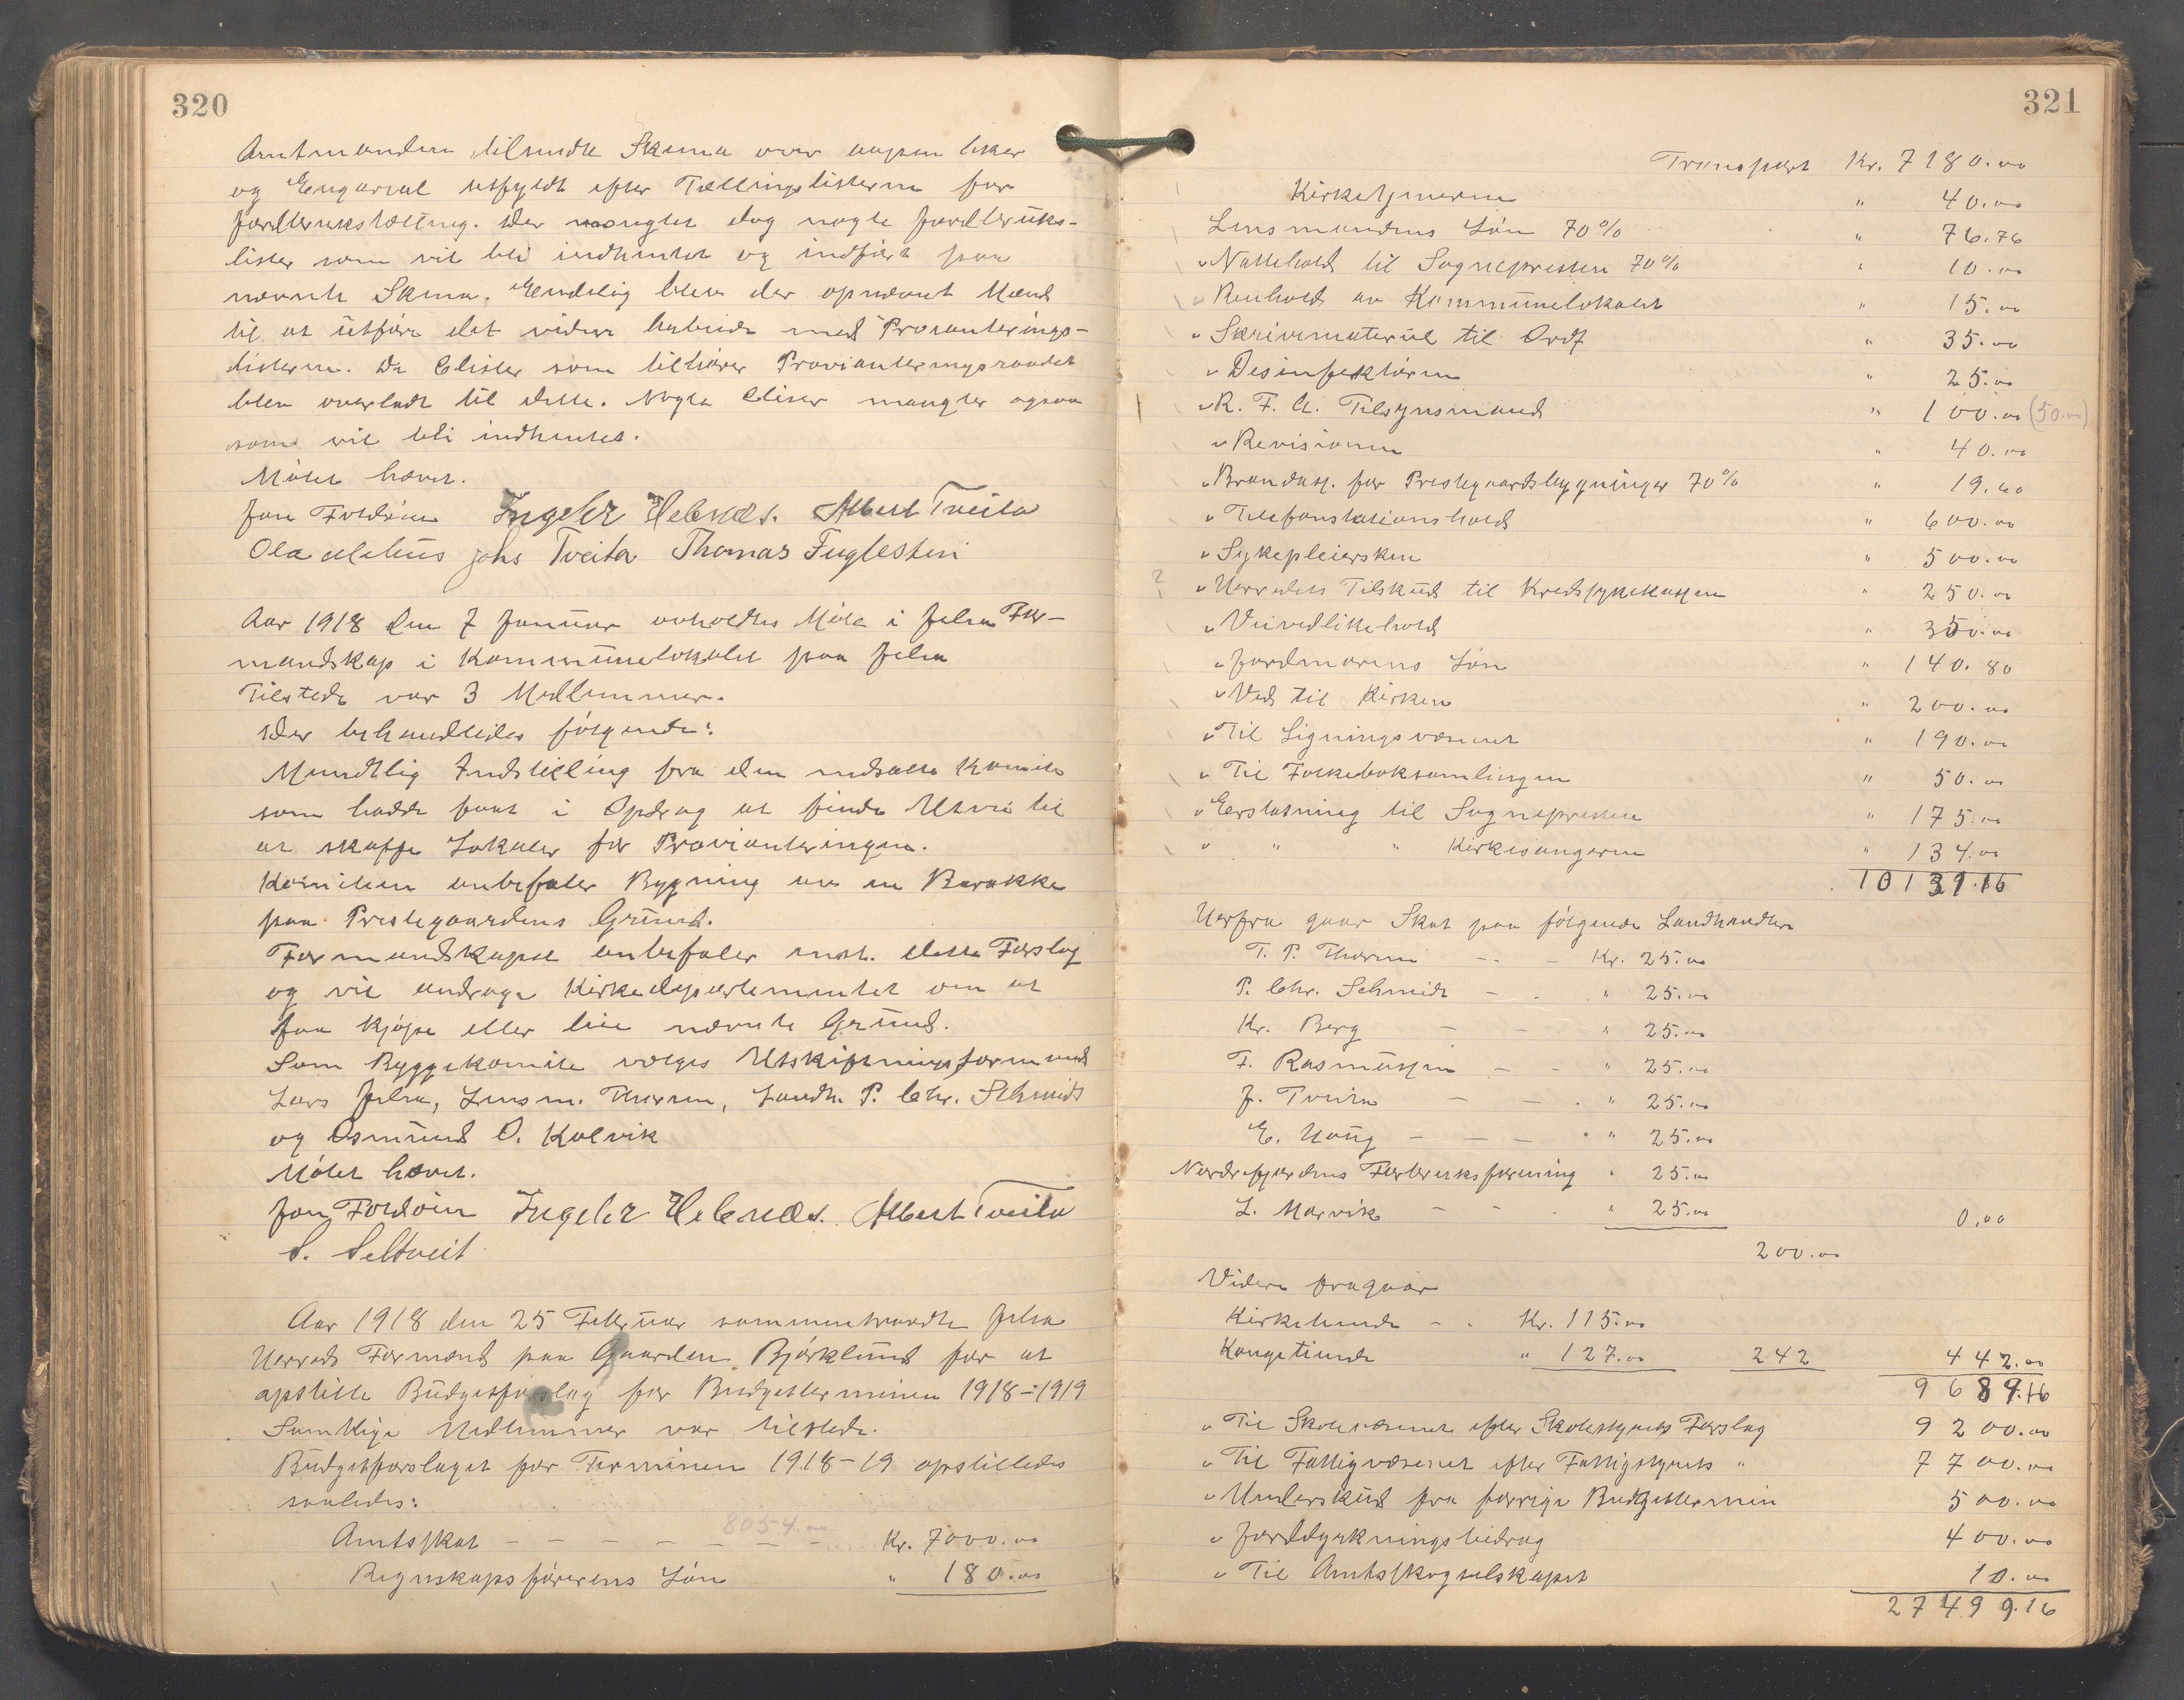 320
Amtmanden tilsendte Skema over aapen Aker
og Engareal utfyldt efter Tællingslisterne for
Jordbrukstælling. Der mangler dog nogle Jordbruks-
lister som vil bli indhentet og indført paa
nævnte Skema. Endelig blev der opnævnt Mænd
til at utføre det videre Arbeide med Provianterings-
listerne. De Clister som tilhører Provianteringsraadet
blev overladt til dette. Nogle Clister mangler ogsaa
som vil bli indhentet.
Møtet hævet.
Jon Foldøin Ingebr Hebnes. Albert Tveita
Ola Mehus Johs Tveita Thomas Fuglestein
Aar 1918 den 7 Januar avholdtes Møte i Jelsa For-
mandskap i Kommunelokalet paa Jelsa
Tilstede var 3 Medlemmer.
Der behandledes følgende:
Mundtlig Indstilling fra den nedsatte Komite
som hadde faat i Opdrag at finde Utvei til
at skaffe Lokaler for Provianteringen.
Komiteen anbefaler Bygning av en Barakke
paa Prestegaardens Grund.
Formandskapet anbefaler enst. dette Forslag
og vil andrage Kirkedepartementet om at
faa kjøpe eller leie nævnte Grund.
Som Byggekomite vælges Utskiftningsformand
Lars Jelsa, Lensm. Thorsen, Landh. P. Chr. Schmidt
og Osmund O. Kolvik
Møtet hævet.
Jon Foldøin Ingebr Hebnes. Albert Tveita
S. Seltveit
Aar 1918 den 25 Februar sammentraadte Jelsa
Herreds Formænd paa Gaarden Bjørklund for at
opstille Budgetforslag for Budgetterminen 1918-1919
Samtlige Medlemmer var tilstede.
Budgetforslaget for Terminen 1918-19 opstilledes
saaledes:
8054.00
Amtsskat - - - - - - - Kr. 7000.00
Regnskapsførerens Løn " 180.00
321
Transport Kr. 7180.00
Kirketjeneren " 40.00
Lensmandens Løn 70% " 76.76
" Nattehold til Sognepresten 70% " 10.00
" Renhold av Kommunelokalet " 15.00
" Skrivemateriel til Ordf " 35.00
" Desinfektøren " 25.00
" R. F. A. Tilsynsmand " 100.00 (50.00)
" Revisionen " 40.00
" Brandass. for Prestegaardsbygninger 70% " 19.60
" Telefonstationshold " 600.00
" Sykepleiersken " 500.00
? " Herredets Tilskud til Kredssykekassen " 250.00
" Veivedlikehold " 350.00
" Jordmorens Løn " 140.80
" Ved til Kirken " 200.00
" Til Ligningsvæsenet " 190.00
" Til Folkeboksamlingen " 50.00
" Erstatning til Sognepresten " 175.00
" " " Kirkesangeren " 134.00
10131.16
Herfra gaar Skat paa følgende Landhandlere
T. P. Thorsen - - - Kr. 25.00
P. Chr. Schmidt - - " 25.00
Kr. Berg - - " 25.00
F. Rasmussen - - " 25.00
J. Tveita - - " 25.00
E. Haug - - - " 25.00
Nordrefjordens Forbruksforening " 25.00
L. Marvik - - " 25.00
0,00
200.00
Videre fragaar
Kirketiende - - Kr. 115.00
Kongetiende " 127.00 242 442.00
9689.16
" Til Skolevæsenet efter Skolestyrets Forslag 9200.00
" Til Fattigvæsenet efter Fattigstyrets " 7700.00
" Underskud fra forrige Budgettermin 500.00
" Jorddyrkningsbidrag 400.00
" Til Amtsskogselskapet 10.00
27499.16